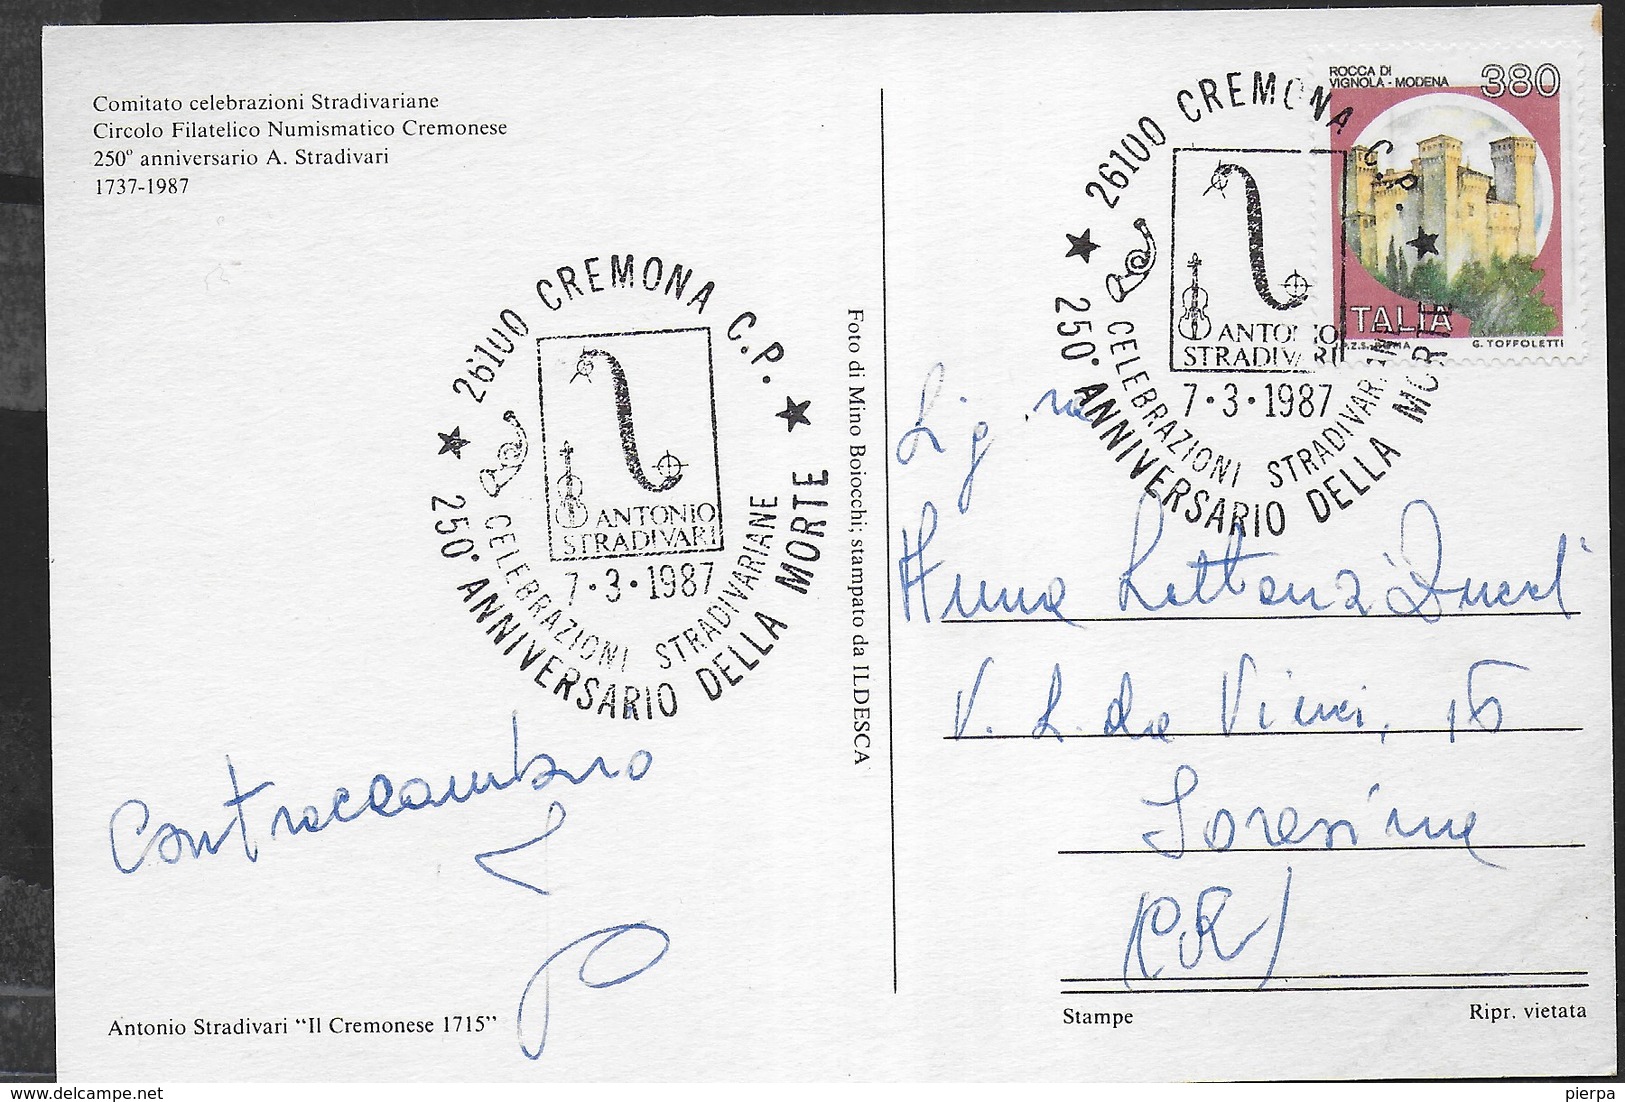 Comitato celebrazioni Stradivariane
Circolo Filatelico Numismatico Cremonese
250º anniversario A. Stradivari
1737-1987
26100 CREMONA C.P.
ANTONIO
STRADIVARI
7·3·1987
CELEBRAZIONI STRADIVARIANE
250° ANNIVERSARIO DELLA MORTE
Contraccambio
Antonio Stradivari “Il Cremonese 1715”
Foto di Mino Boiocchi; stampato da ILDESCA
ROCCA DI
VIGNOLA - MODENA
380
ITALIA
G. TOFFOLETTI
26100 CREMONA C.P.
ANTONIO
STRADIVARI
7·3·1987
CELEBRAZIONI STRADIVARIANE
250° ANNIVERSARIO DELLA MORTE
Sig.ra
Anna
V. L. da Vinci, 16
Soresina
(CR)
Stampe
Ripr. vietata
pierpa